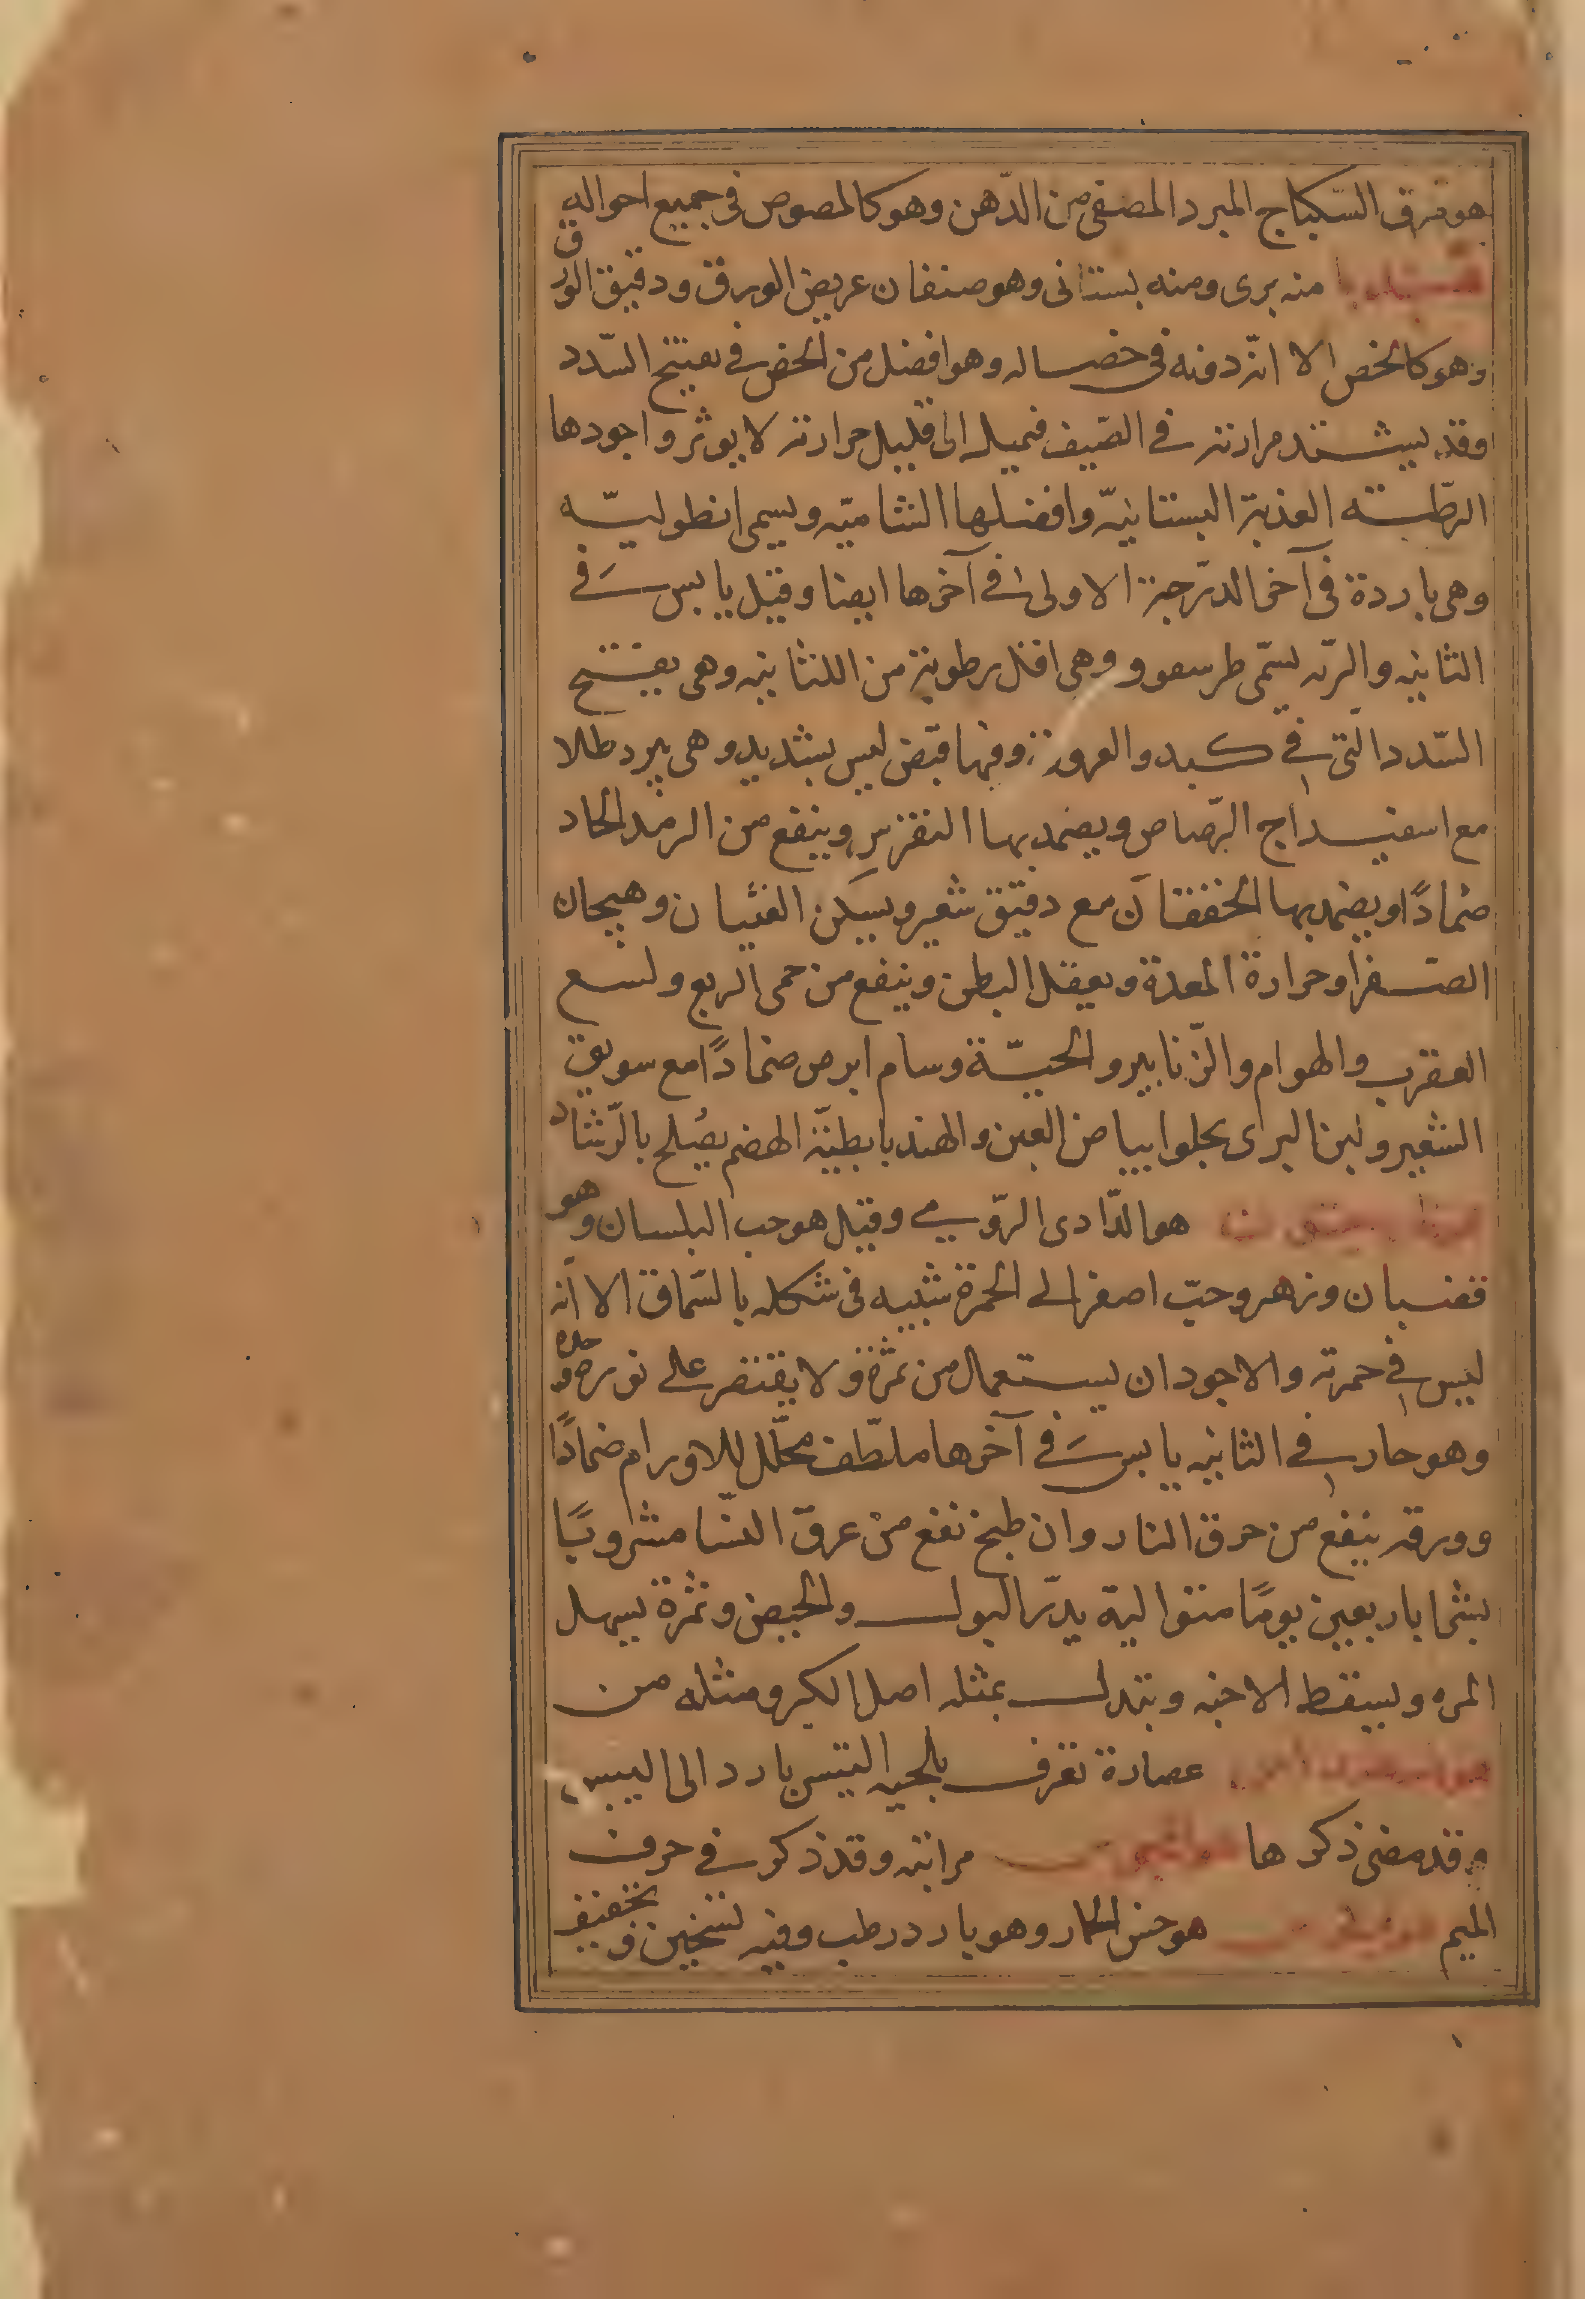 هو مرق السّكباج المبرد المصفى من الدّهن وهو كالمصوص فى جميع احواله
هندبا منه برى ومنه بستانى وهو صنفان عريض الورق ودقيق الورق
وهو كالخص الا انّه دونه فى خصاله وهو افضل من الخص فى تفتيح السّدد
وقد يشتد مرارته فى الصّيف فيميله الى قليل حرارته لا يوثر واجودها
الرّطبته العذبة البستانيّه وافضلها الشاميّه ويسمى انطوليّه
وهى باردة فى آخر الدّرجة الاولى فى آخرها ايضا وقيل يابس فى
الثانيه والبرّيه يسمّى طرسعوو وهى اقل رطوبة من الثانيه وهى يفتح
السّدد التى فى كبد والعروق وفيها قبض ليس بشديد وهى يبرد طلا
مع اسفيداج الرّصاص ويضمد بها النقرس وينفع من الرمد الحاد
ضمادًا ويضمد بها الخفقان مع دقيق شعير ويسكن الغثيان وهيجان
الصّفرا وحرارة المعدة ويعقل البطن وينفع من حمى الربع ولسع
العقرب والهوام والزّنابير والحيّة وسام ابرص ضمادًا مع سويق
الشعير ولبن البرى يجلوا بياض العين والهندبا بطيّة الهضم يصلح بالرّشاد
هو الدّادى الرّومى وقيل هو حب البلسان وهو
قضبان وزهر وحبّ اصفر الى الحمرة شبيه فى شكله بالسّماق الا انّه
ليس فى حمرته والاجود ان يستعمال من ثمرة ولا يقتصر على نوره وحده
وهو حار فى الثانيه يابس فى آخرها ملطّف محلّل للاورام ضمادًا
وورقه ينفع من حرق النار وان طبخ نفع من عرق النسّا مشروبًا
بشمابا ربعين يومًا متوالية يدرّ البول والحيض وثمرة يسهل
المره ويسقط الاجنه وبدل بمثله اصل الكبر ومثله من
عصارة تعرف بلحيه التيس بارد الى اليبس
وقد مضى ذكرها مرانيه وقد ذكر فى حرف
الميم هو خس الحمار وهو بارد رطب وفيه تسخين وتخفيف